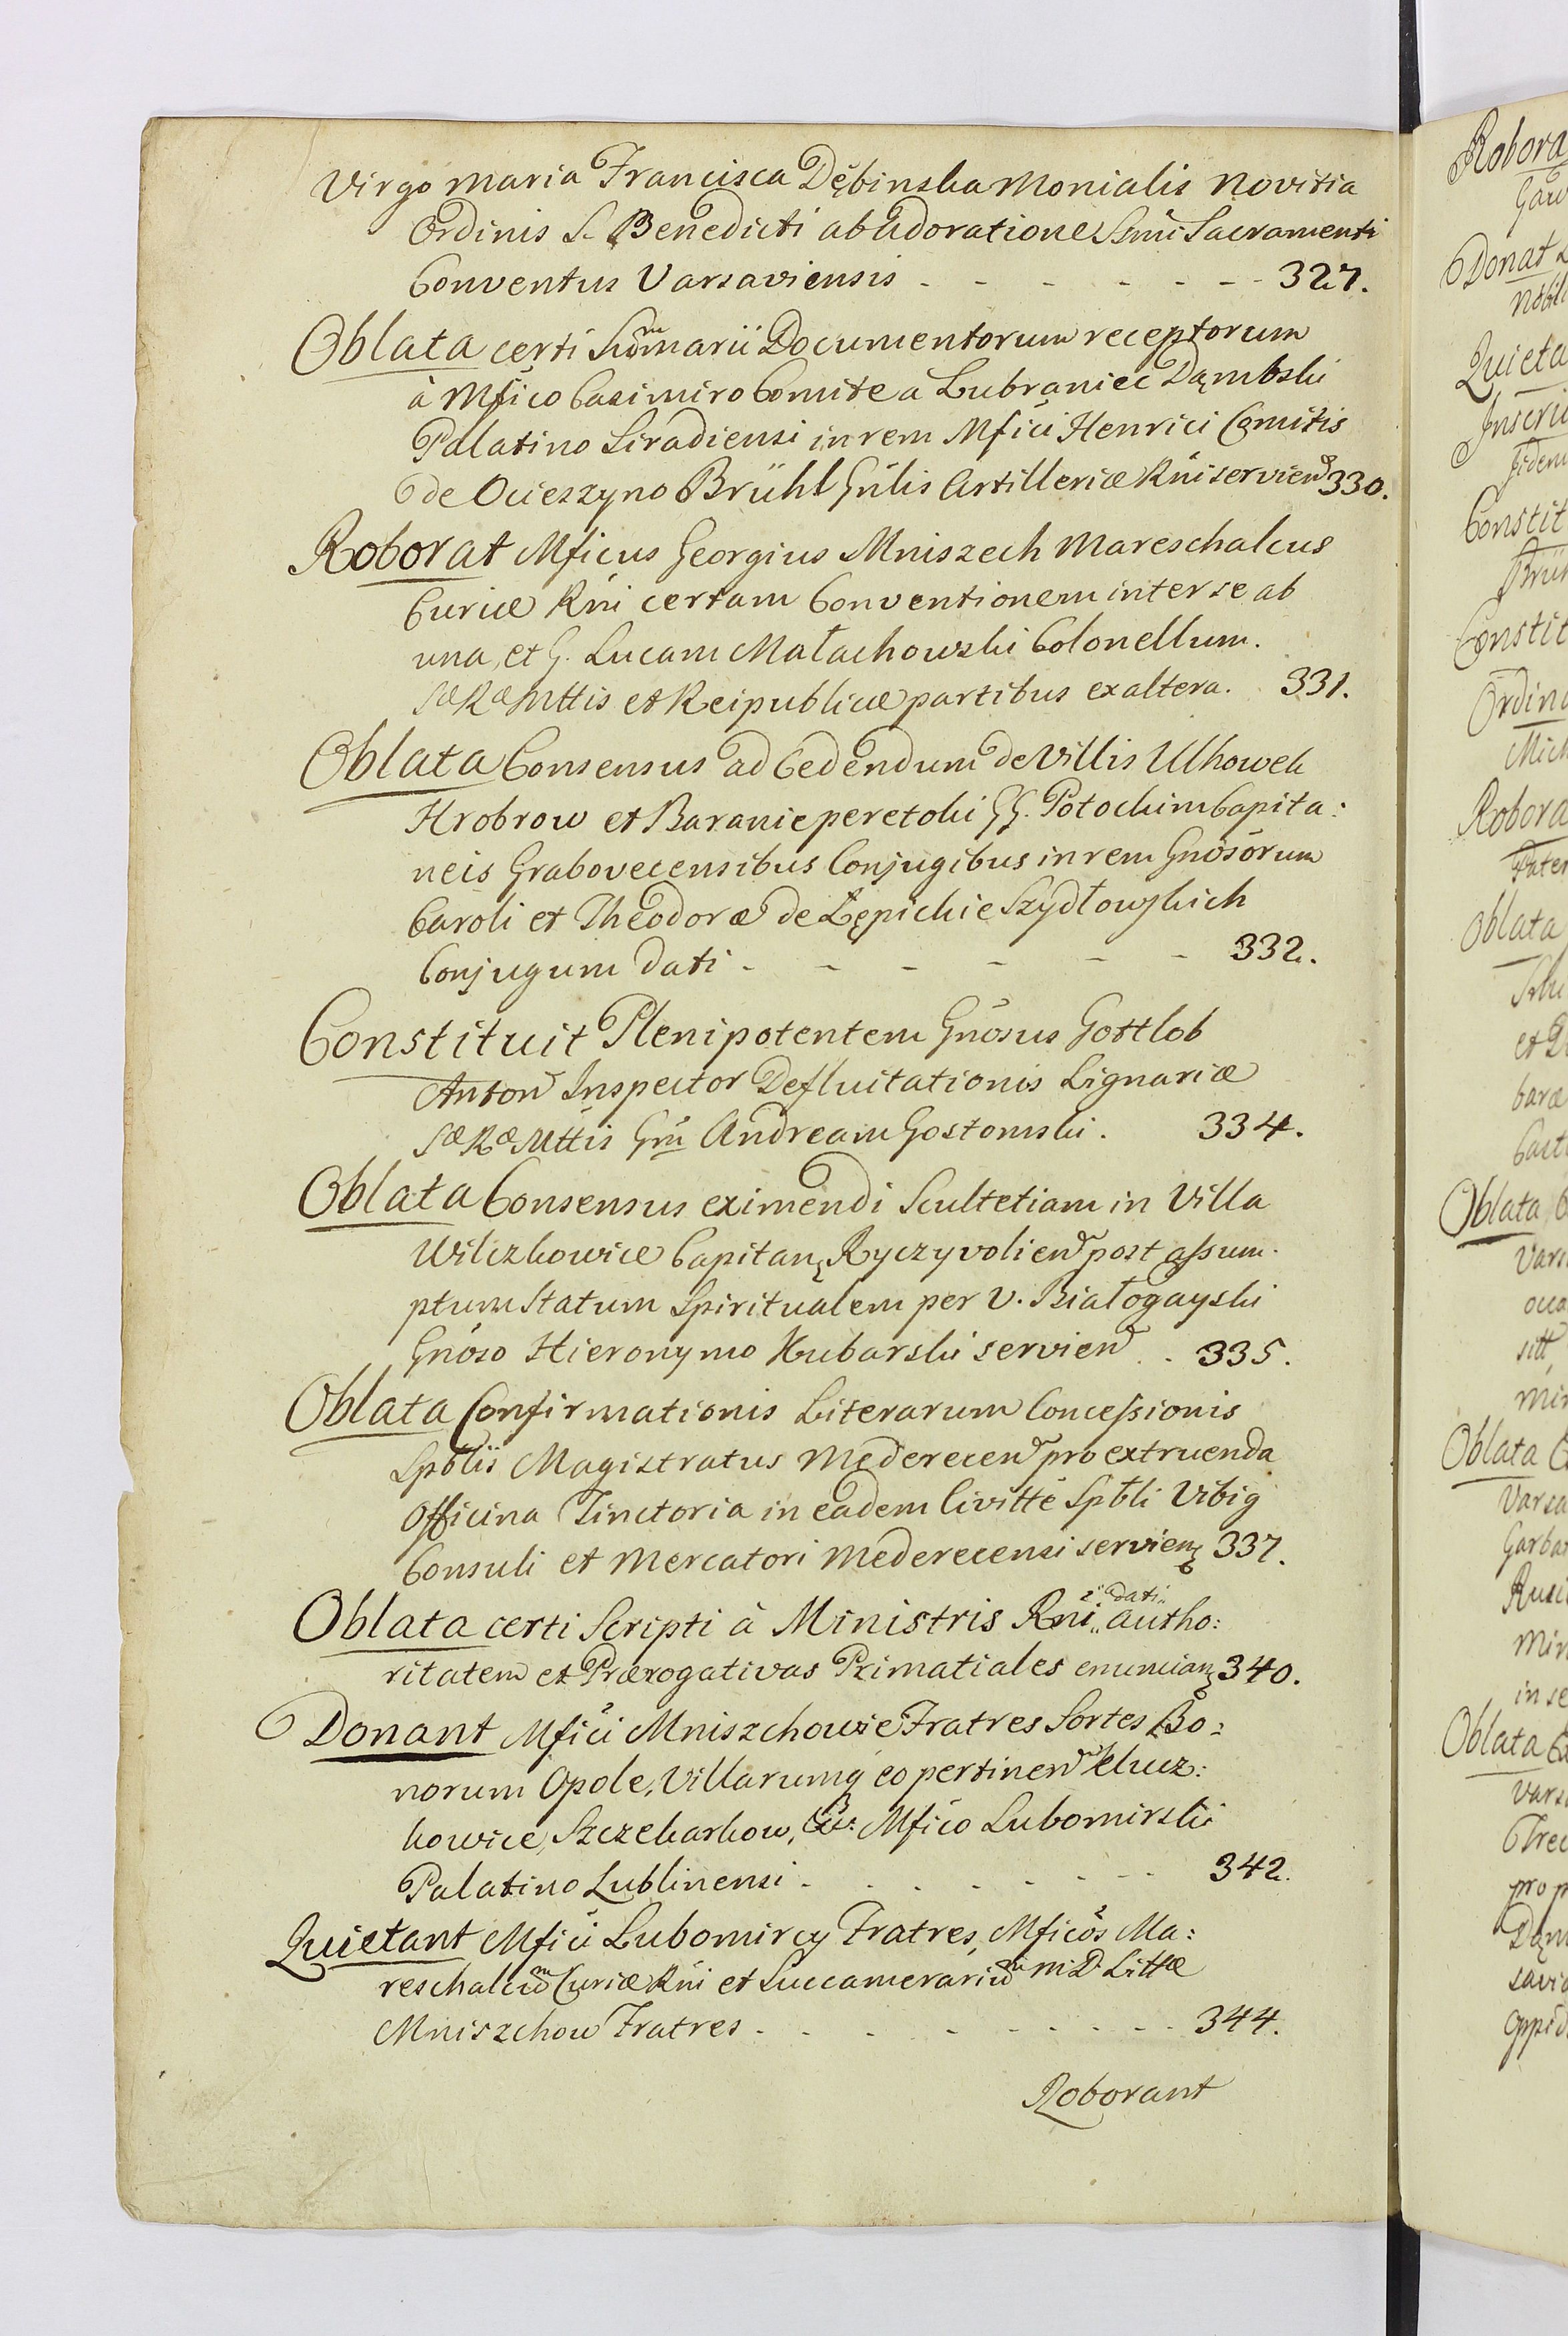 Virgo Maria Francisca Dębinska Monialis Novitia
Ordinis S. Benedicti ab Adoratione Ssmi Sacramenti
Conventus Varsaviensis - - - - - - - 327.
Oblata certi Summarii Documentorum receptorum
à Mfico Casimiro Comite a Lubraniec Dąmbski
Palatino Siradiensi in rem Mfici Henrici Comitis
de Ocieszyno Brühl Gnlis Artilleriæ Rni servien 330.
Roborat Mficus Georgius Mniszech Mareschalcus
Curiæ Rni certam Conventionem inter se ab
una, et G. Lucam Małachowski Colonellum.
Sæ Ræ Mttis et Reipublicæ partibus ex altera. 331.
Oblata Consensus ad Cedendum de Villis Ulhowek
Hrobrow et Baranieperetoki GG. Potockim Capita:
neis Grabovecensibus Conjugibus in rem Gnosorum
Caroli et Theodoræ de Łępickie Szydłowskich
Conjugum dati - - - - - - 332.
Constituit Plenipotentem Gnosus Gottlob
Anton Inspector Defluitationis Lignariæ
Sæ Ræ Mttis Gm Andream Gostomski. 334.
Oblata Consensus eximendi Scultetiam in Villa
Wilczkowice Capitan Ryczyvolien post assum.
ptum Statum Spiritualem per V. Białogayski
Gnoso Hieronymo Kubarski servien . . 335.
Oblata Confirmationis Literarum Concessionis
Spblis Magistratus Mederecen pro extruenda
Officina Tinctoria in eadem Civitte Spbli Vibig
Consuli et Mercatori Mederecensi servien 337.
dati
Oblata certi Scripti à Ministris Rni autho:
ritatem et Prærogativas Primatiales enuncian 340.
Donant Mfici Mniszchowie Fratres Sortes Bo:
norum Opole, Villarumq eo pertinen Klucz:
kowice, Szczekarkow, Mfico Lubomirski
Palatino Lublinensi - . . . - - - 342.
Quietant Mfici Lubomircy Fratres, Mficos Ma:
reschalcum Curiæ Rni et Succamerarium M. D. Littæ
Mniszchow Fratres - - - - - - - - 344.
Roborant
Robora
Gaw
Donat
Nobil
Quieta
Inscri
fidem
Constit
Brüh
Constit
Ordina
Mich
Robora
Pater
Oblata
et D
baræ
Cast
Oblata C
Vars
occa
sitt
Min
Oblata C
Varsa
Garba
Min
in se
Oblata
Varsa
prop
Dąm
savi
Oppid